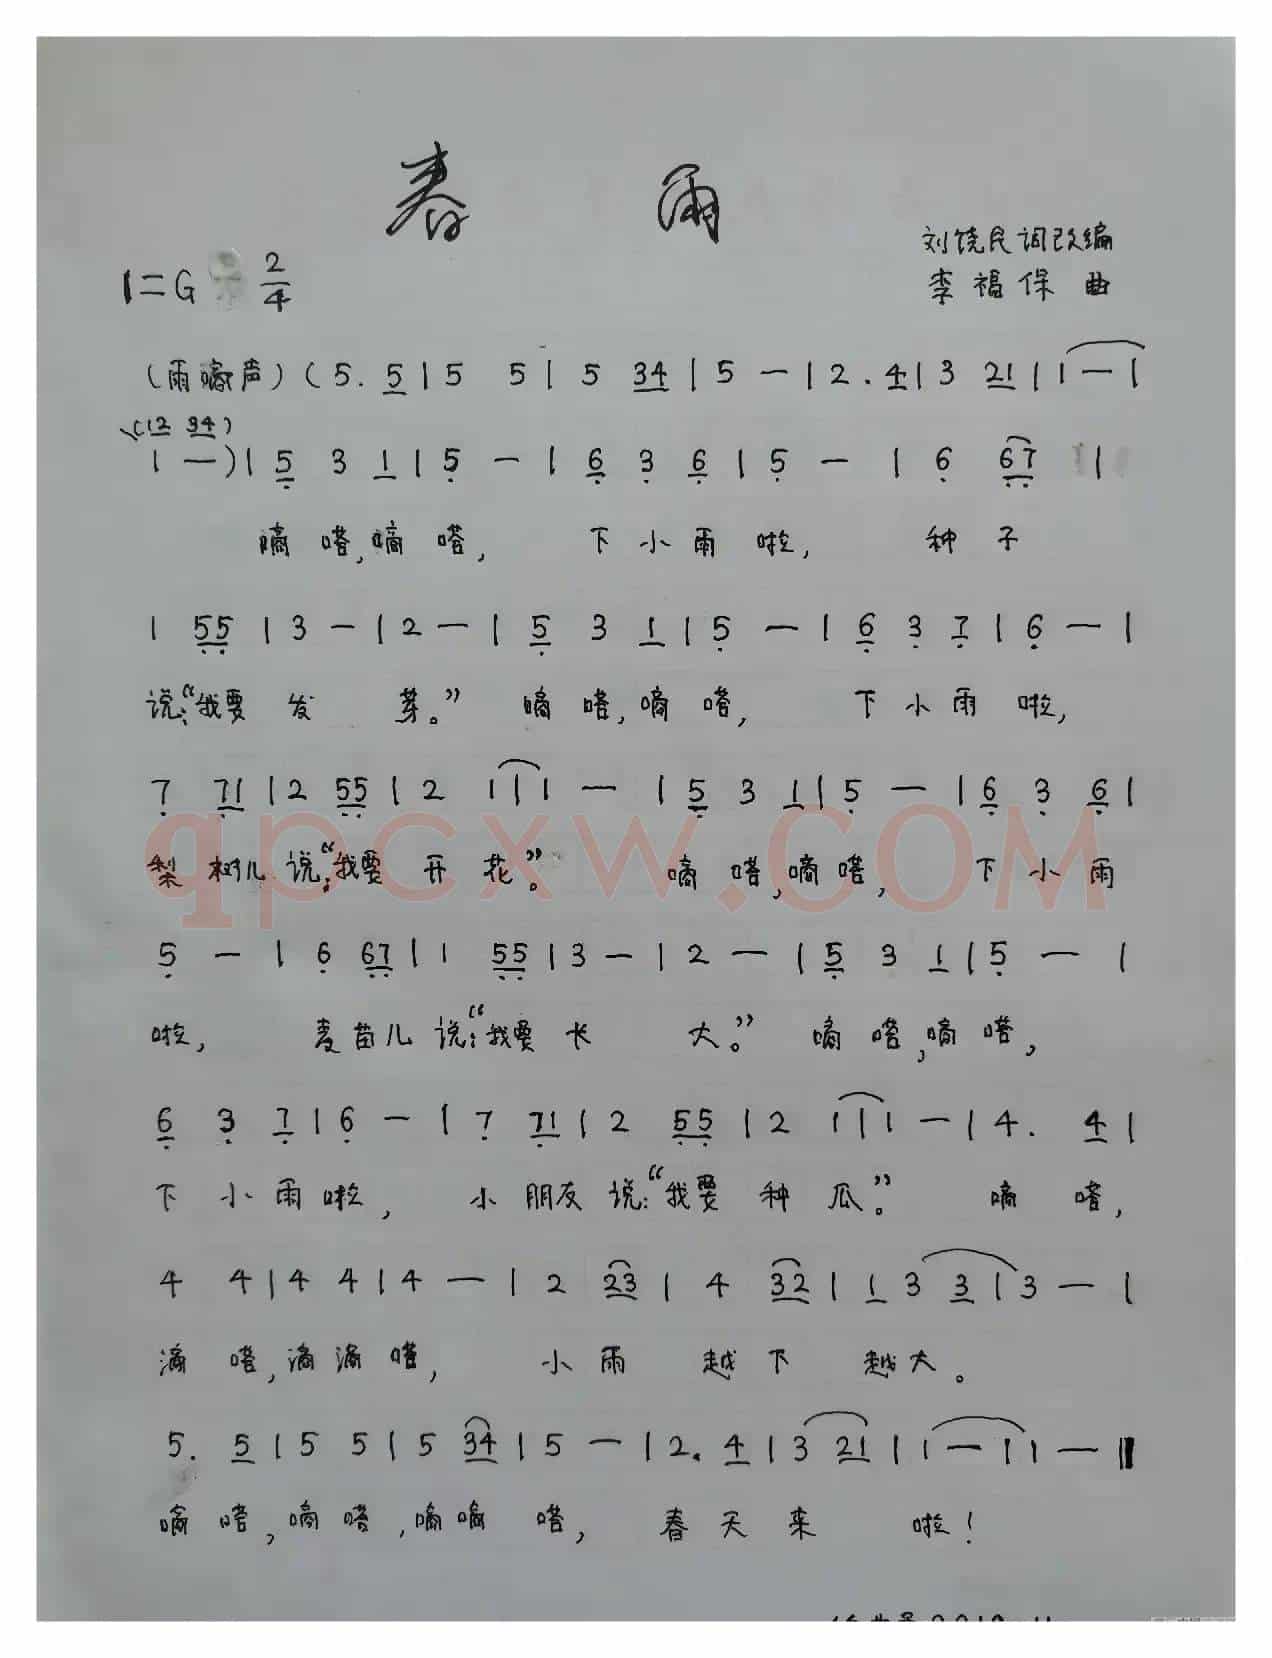 春 雨
刘饶民词改编
1=G 2/4
李福保 曲
(雨嘀声)(5. 5|5 5|5 34|5 —|2. 4|3 21|1 —|
(12 34)
1 —)|5 3 1|5 —|6 3 6|5 —|6 67|
嘀嗒,嘀嗒, 下小雨啦, 种子
1 55|3 —|2 —|5 3 1|5 —|6 3 7|6 —|
说:“我要发芽。” 嘀嗒,嘀嗒, 下小雨啦,
7 71|2 55|2 1|1 —|5 3 1|5 —|6 3 6|
梨树儿说:“我要开花”。 嘀嗒,嘀嗒, 下小雨
qpcxw.COM
5 —|6 67|1 55|3 —|2 —|5 3 1|5 —|
啦, 麦苗儿说:“我要长大。” 嘀嗒,嘀嗒,
6 3 7|6 —|7 71|2 55|2 1|1 —|4. 4|
下小雨啦, 小朋友说:“我要种瓜。” 嘀嗒,
4 4|4 4|4 —|2 23|4 32|1 3 3|3 —|
滴嗒,滴滴嗒, 小雨越下越大。
5. 5|5 5|5 34|5 —|2. 4|3 21|1 —|1 —‖
嘀嗒,嘀嗒,嘀嘀嗒, 春天来啦!